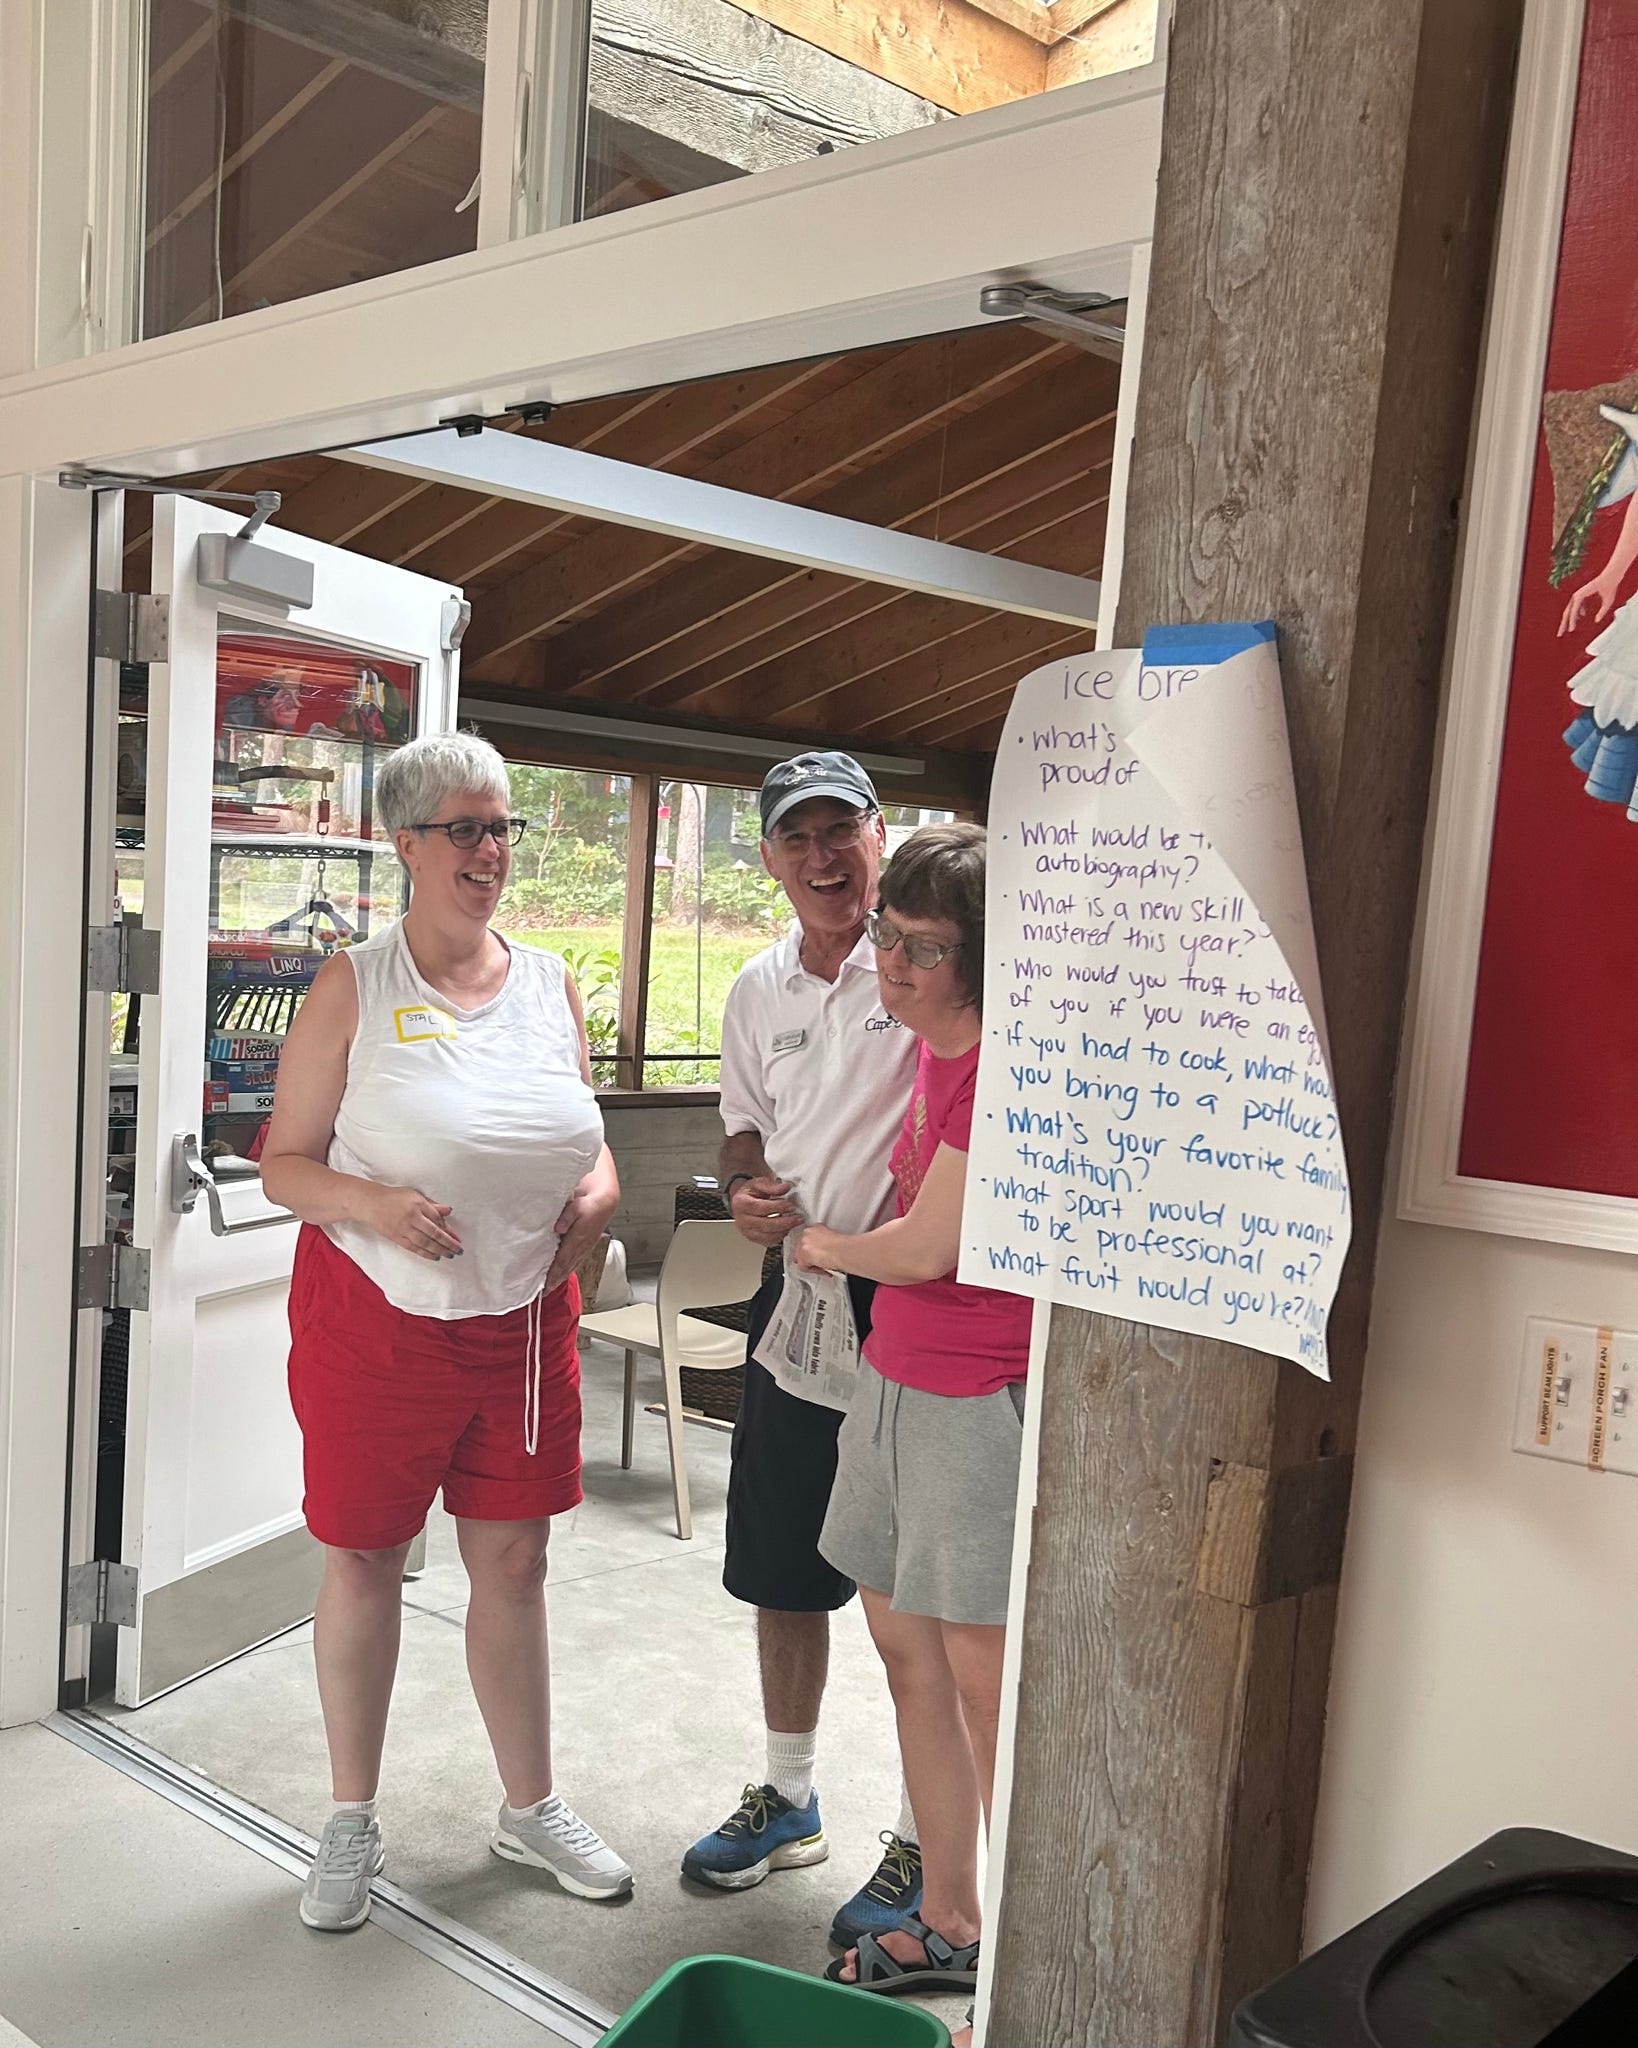 ice bre
• What's
proud of
• What would be
autobiography?
• What is a new skill
mastered this year?
• Who would you trust to take
of you if you were an egg
• if you had to cook, what wou
you bring to a potluck?
• What's your favorite family
tradition?
• What sport would you want
to be professional at?
• What fruit would you be?/AND
WHY?
SUPPORT BEAM LIGHTS
SCREEN PORCH FAN
Cape Air
Cape
STAC
MONOPOLY
1000
LINQ
SORRY
Oak Bluffs sewn into fabric